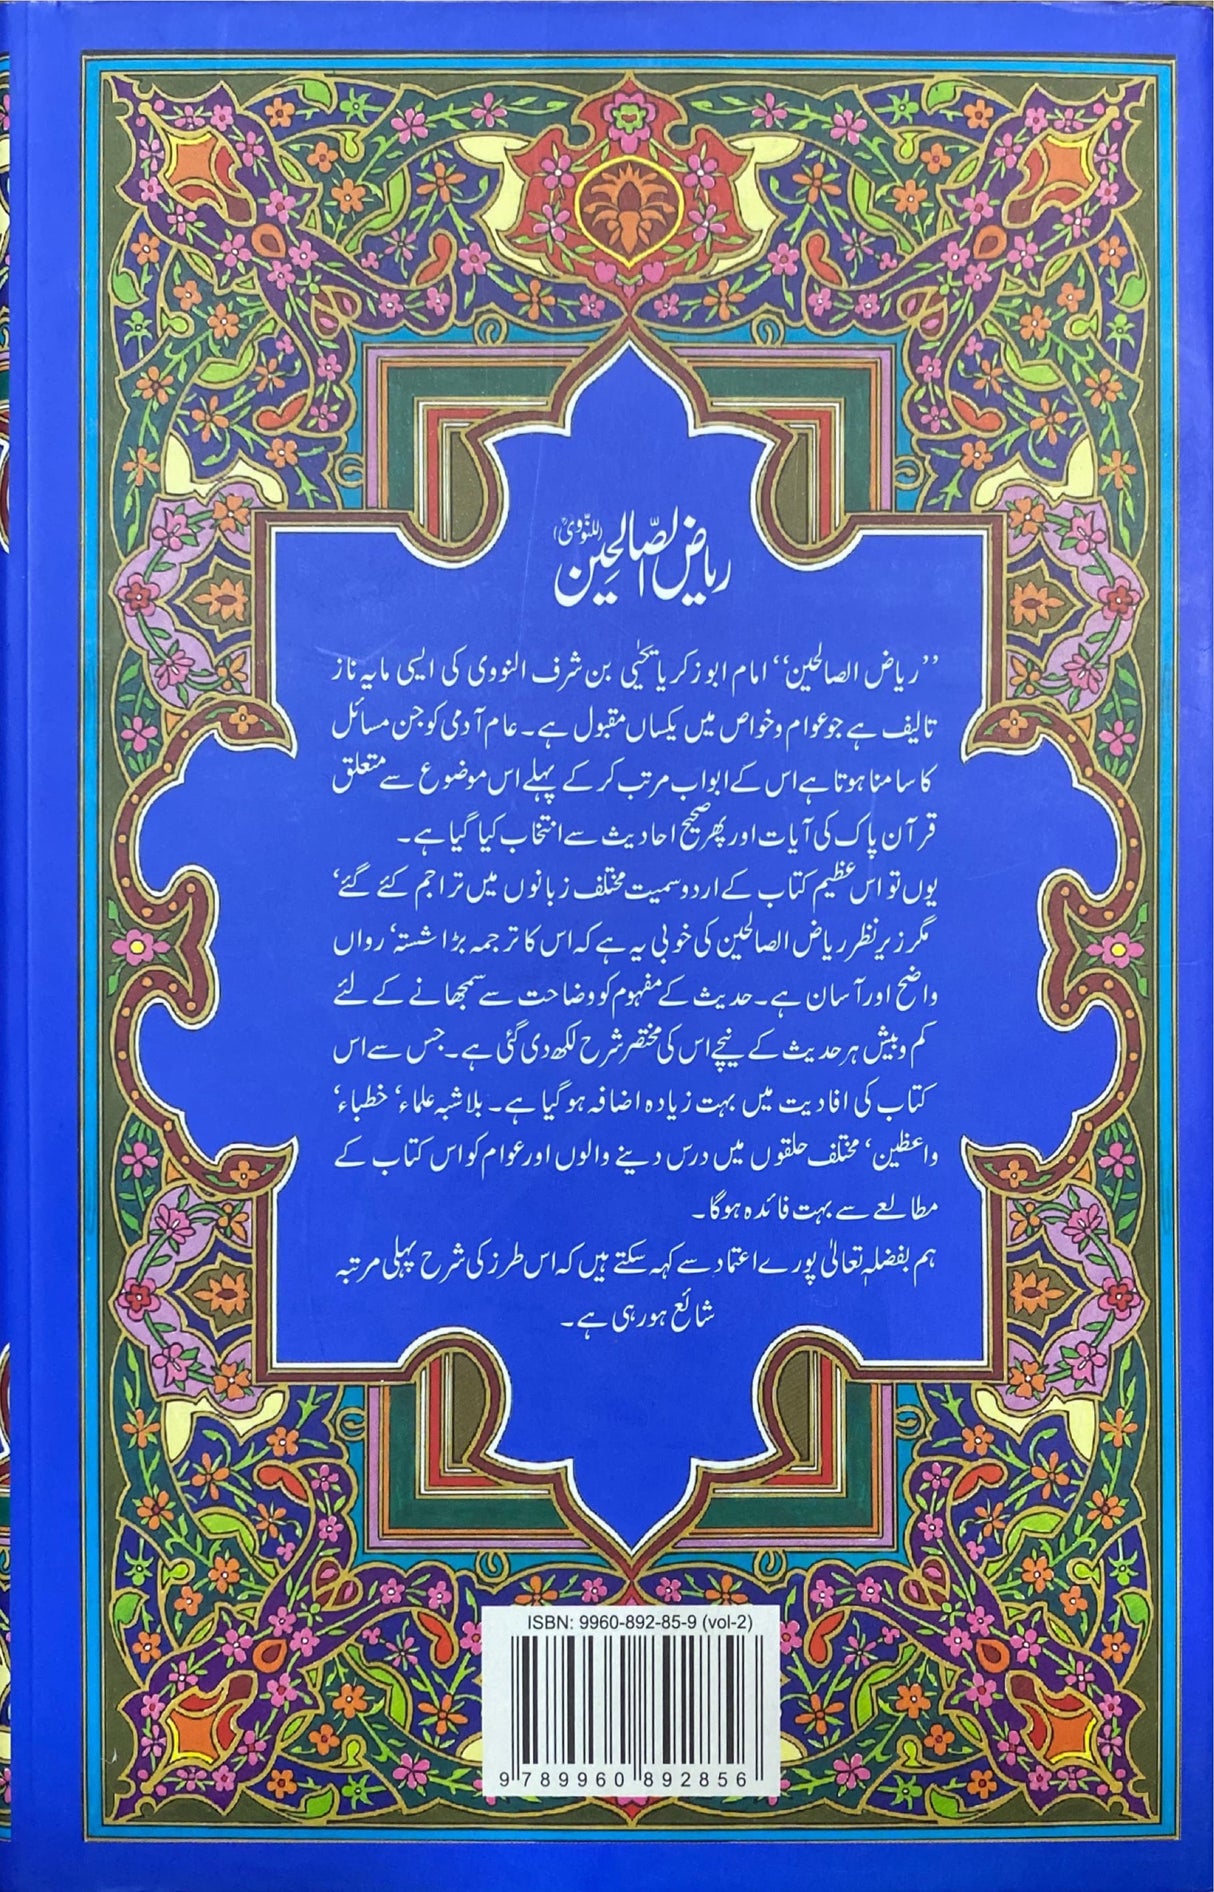 ریاض الصّالحین (للنّوویؒ)
’’ریاض الصالحین‘‘ امام ابو زکریا یحییٰ بن شرف النووی کی ایسی مایہ ناز
تالیف ہے جو عوام و خواص میں یکساں مقبول ہے۔ عام آدمی کو جن مسائل
کا سامنا ہوتا ہے اس کے ابواب مرتب کر کے پہلے اس موضوع سے متعلق
قرآن پاک کی آیات اور پھر صحیح احادیث سے انتخاب کیا گیا ہے۔
یوں تو اس عظیم کتاب کے اردو سمیت مختلف زبانوں میں تراجم کئے گئے‘
مگر زیر نظر ریاض الصالحین کی خوبی یہ ہے کہ اس کا ترجمہ بڑا شستہ‘ رواں
واضح اور آسان ہے۔ حدیث کے مفہوم کو وضاحت سے سمجھانے کے لئے
کم و بیش ہر حدیث کے نیچے اس کی مختصر شرح لکھ دی گئی ہے۔ جس سے اس
کتاب کی افادیت میں بہت زیادہ اضافہ ہو گیا ہے۔ بلاشبہ علماء‘ خطباء‘
واعظین‘ مختلف حلقوں میں درس دینے والوں اور عوام کو اس کتاب کے
مطالعے سے بہت فائدہ ہوگا۔
ہم بفضلہٖ تعالیٰ پورے اعتماد سے کہہ سکتے ہیں کہ اس طرز کی شرح پہلی مرتبہ
شائع ہو رہی ہے۔
ISBN: 9960-892-85-9 (vol-2)
9 789960 892856